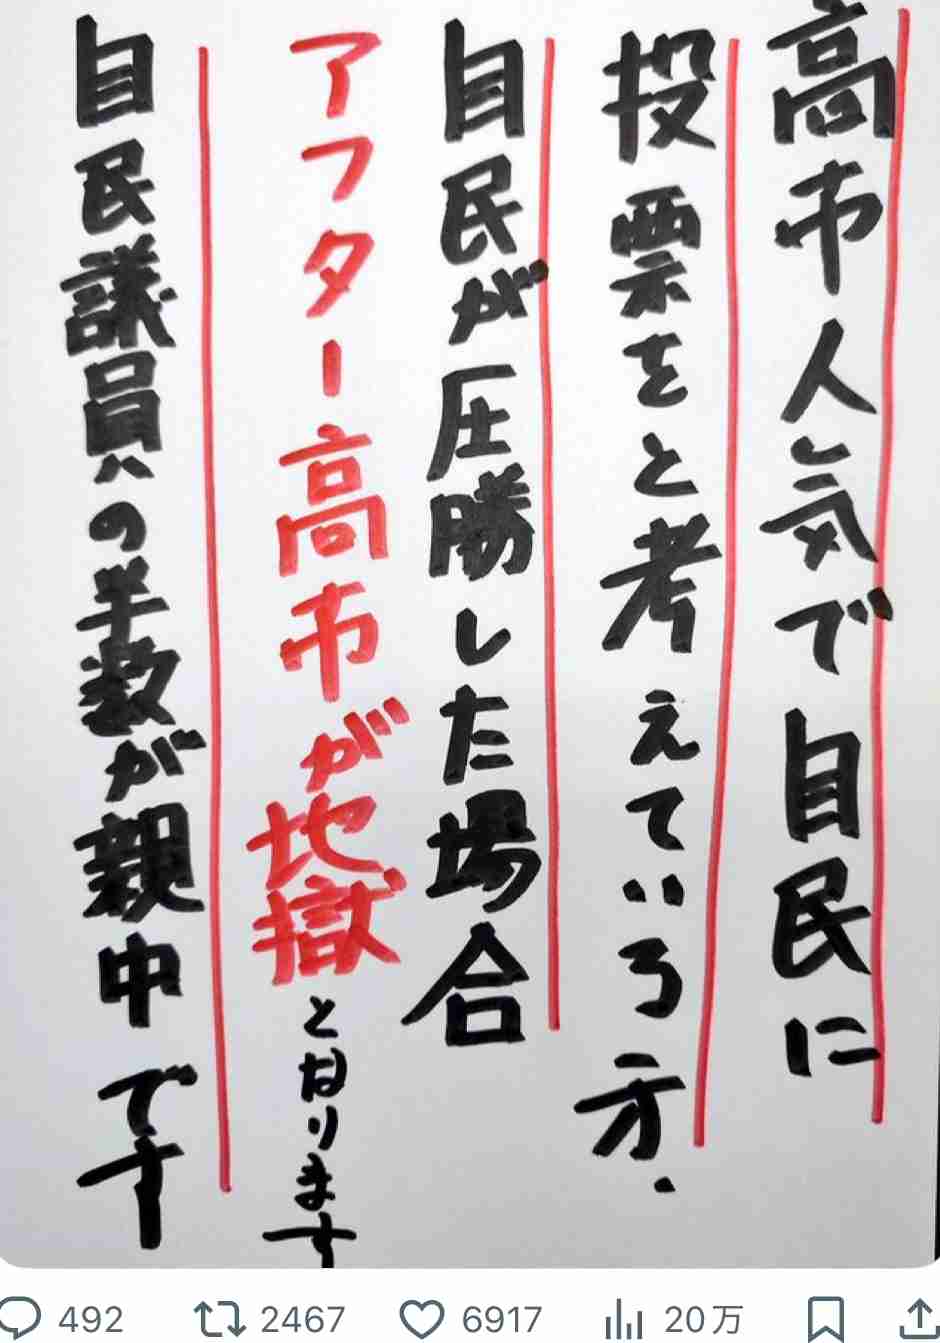 高市人気で自民に
投票をと考えている方.
自民が圧勝した場合
アフター高市が地獄となります
自民議員への半数が親中です
492 2467 6917 20万